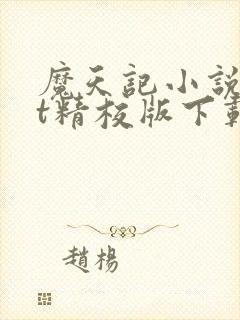 魔天記小說
t精校版下載
趙楊